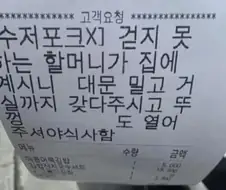 고객요청
수저포크X] 걷지 못
하는 할머니가 집에
계시니 대문 밀고 거
실까지 갖다주시고 뚜
껑 도 열어
주셔야식사함
메뉴 수량 금액